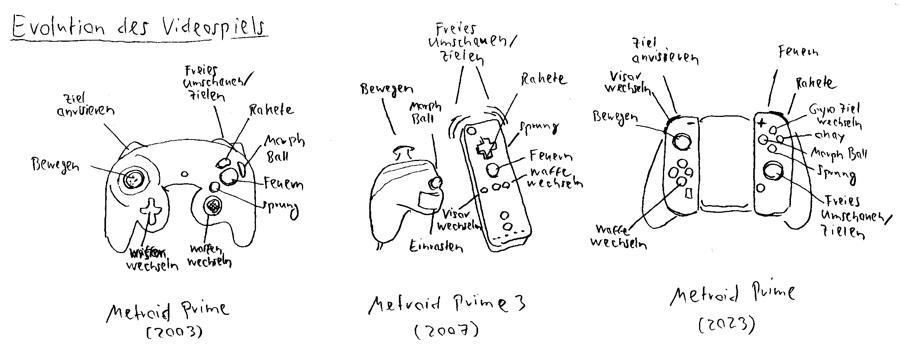 Evolution des Videospiels
Ziel
anvisieren
Freies
Umschauen/
Zielen
Rakete
Morph
Ball
Bewegen
Feuern
Sprung
wechseln
Waffen
wechseln
Metroid Prime
(2003)
Freies
Umschauen/
Zielen
Bewegen
Morph
Ball
Rakete
Sprung
Feuern
Waffe
wechseln
Visor
wechseln
Einrasten
Metroid Prime 3
(2007)
Ziel
anvisieren
Visor
wechseln
Bewegen
Waffe
wechseln
Feuern
Rakete
Gyro Ziel
wechseln
okay
Morph Ball
Sprung
Freies
Umschauen/
Zielen
Metroid Prime
(2023)